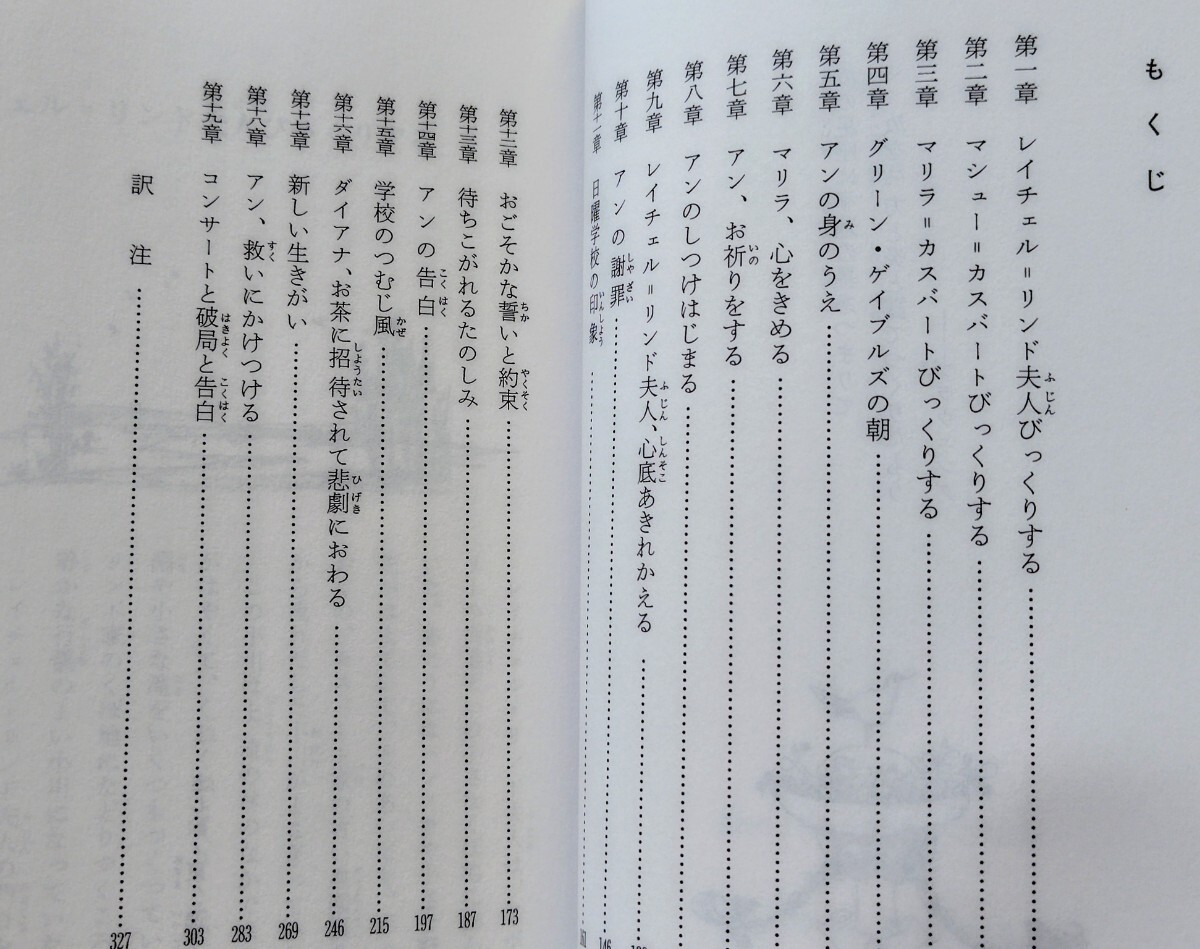 もくじ
第一章 レイチェル=リンド夫人びっくりする
第二章 マシュー=カスバートびっくりする
第三章 マリラ=カスバートびっくりする
第四章 グリーン・ゲイブルズの朝
第五章 アンの身のうえ
第六章 マリラ、心をきめる
第七章 アン、お祈りをする
第八章 アンのしつけはじまる
第九章 レイチェル=リンド夫人、心底あきれかえる
第十章 アンの謝罪 146
第十一章 日曜学校の印象
第十二章 おごそかな誓いと約束 173
第十三章 待ちこがれるたのしみ 187
第十四章 アンの告白 197
第十五章 学校のつむじ風 215
第十六章 ダイアナ、お茶に招待されて悲劇におわる 246
第十七章 新しい生きがい 269
第十八章 アン、救いにかけつける 283
第十九章 コンサートと破局と告白 303
訳注 327